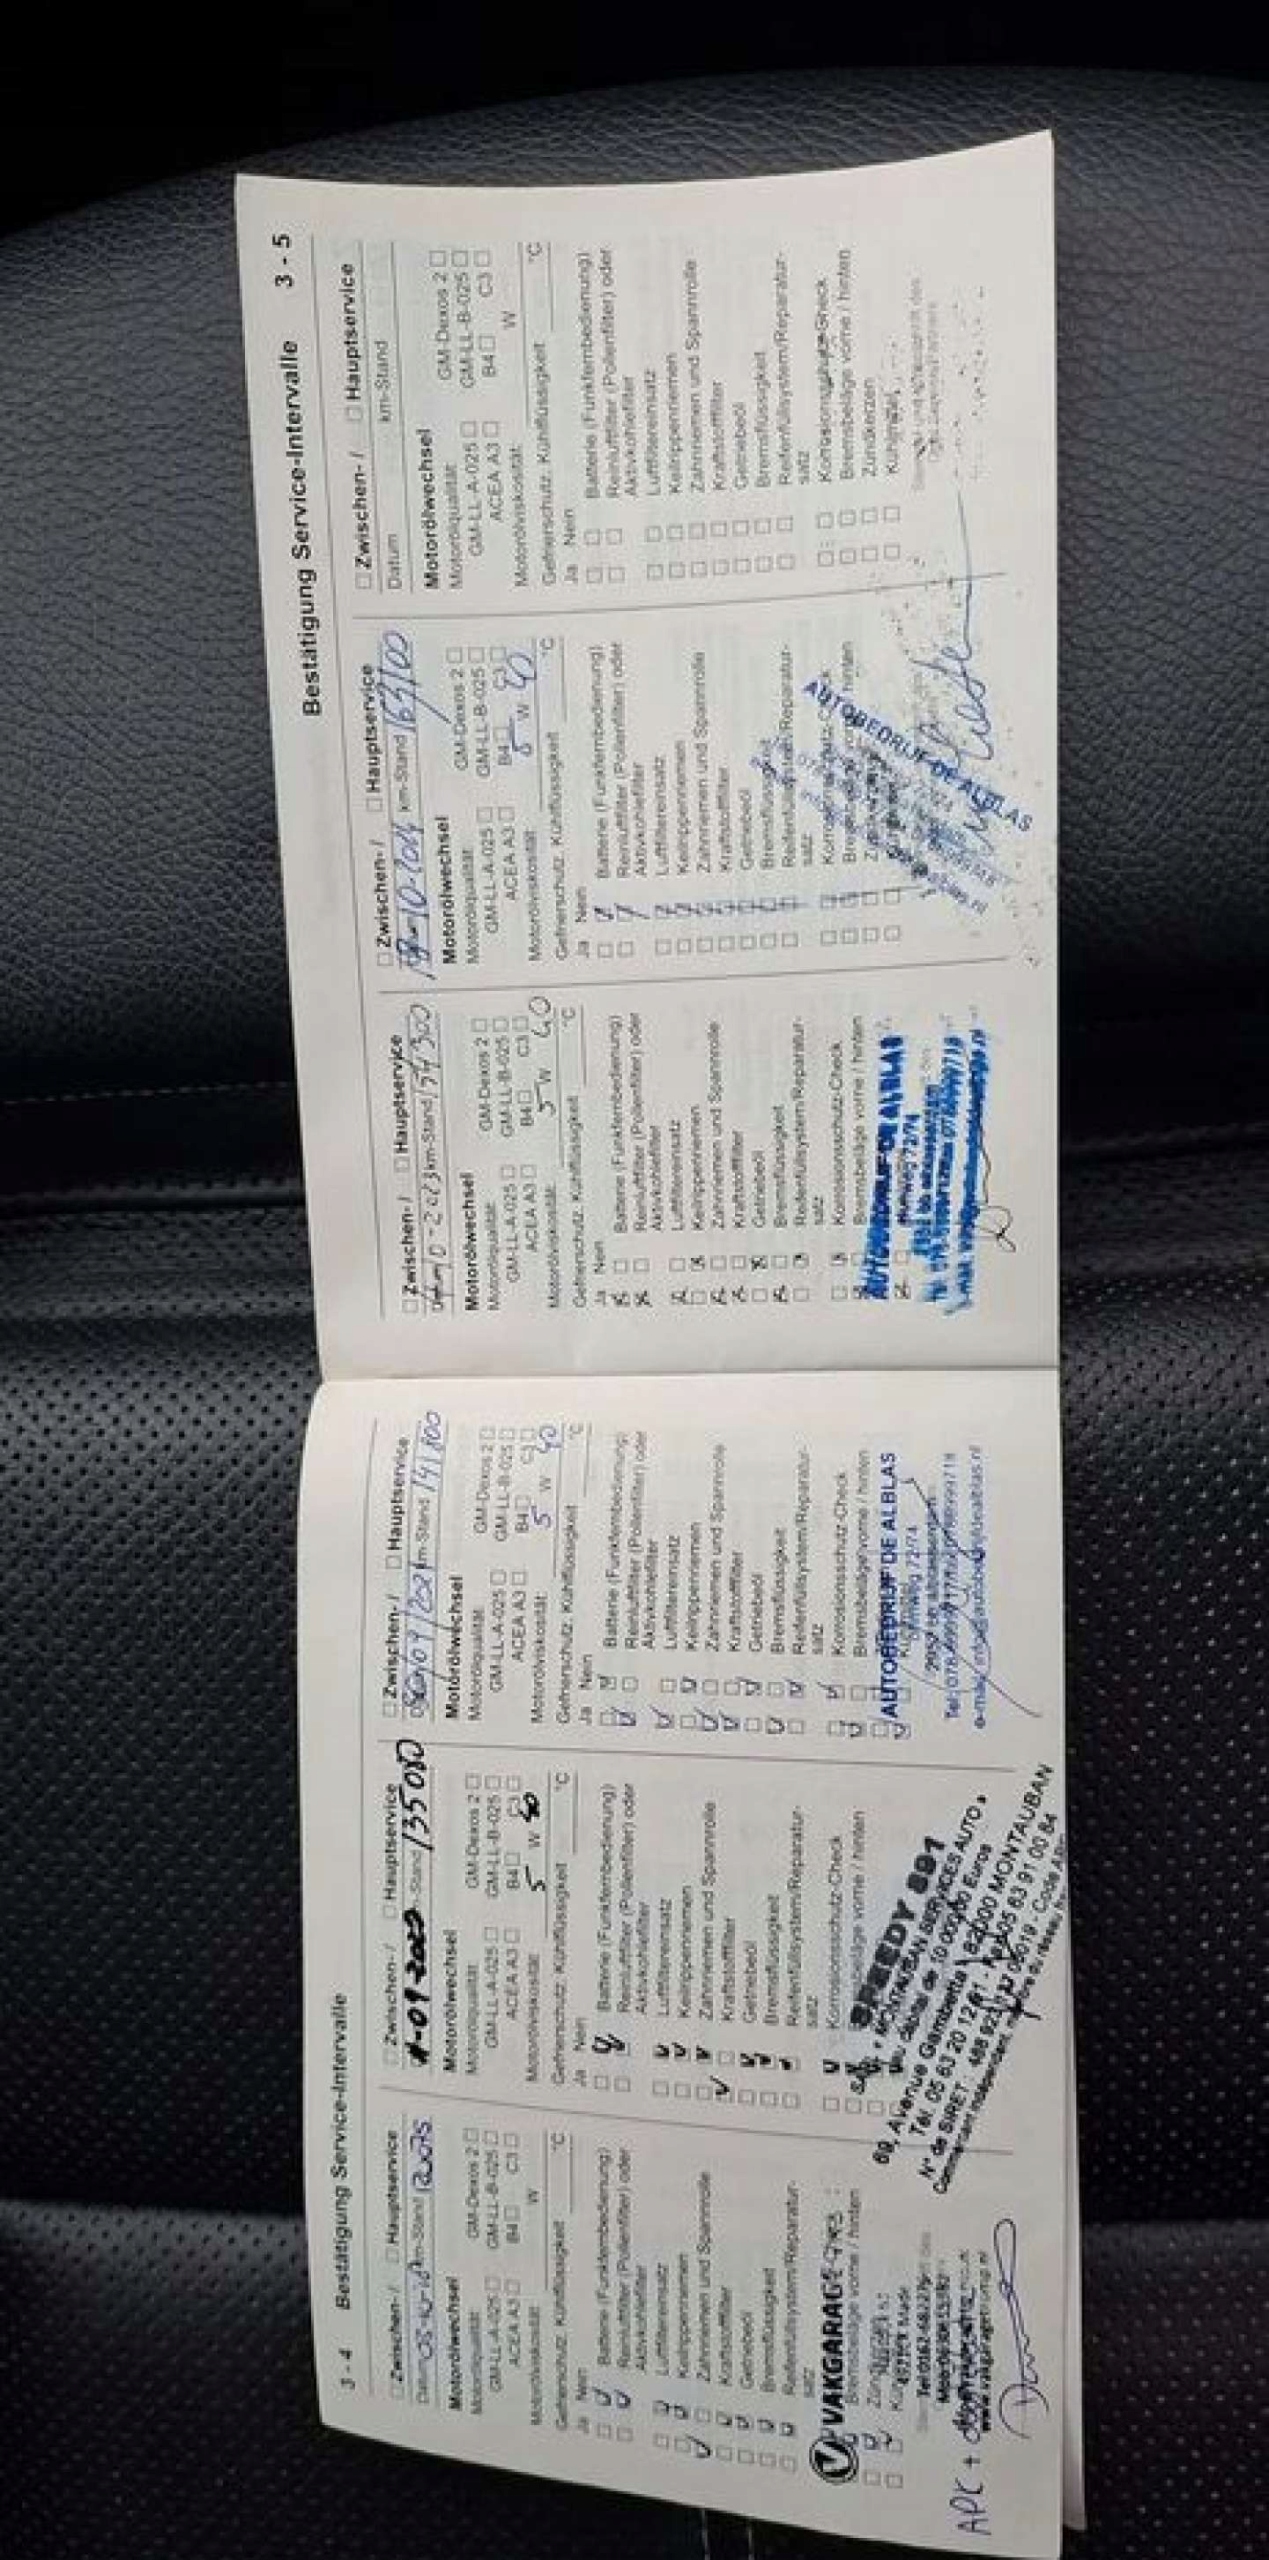 3 - 4 Bestätigung Service-Intervalle
Zwischen- / Hauptservice
km-Stand
Motorölwechsel
Motorölqualität: GM-Dexos 2
GM-LL-A-025 GM-LL-B-025
ACEA A3 B4 C3
Motorölviskosität: W
Gefrierschutz: Kühlflüssigkeit °C
Ja Nein
Batterie (Funkfernbedienung)
Reinluftfilter (Pollenfilter) oder
Aktivkohlefilter
Luftfiltereinsatz
Keilrippenriemen
Zahnriemen und Spannrolle
Kraftstofffilter
Getriebeöl
Bremsflüssigkeit
Reifenfüllsystem/Reparatur-
satz
VAKGARAGE
Bremsbeläge vorne / hinten
APK +
Zwischen- / Hauptservice
-Stand 135000
Motorölwechsel
Motorölqualität: GM-Dexos 2
GM-LL-A-025 GM-LL-B-025
ACEA A3 B4 C3
Motorölviskosität: 5 W 40
Gefrierschutz: Kühlflüssigkeit °C
Ja Nein
Batterie (Funkfernbedienung)
Reinluftfilter (Pollenfilter) oder
Aktivkohlefilter
Luftfiltereinsatz
Keilrippenriemen
Zahnriemen und Spannrolle
Kraftstofffilter
Getriebeöl
Bremsflüssigkeit
Reifenfüllsystem/Reparatur-
satz
Korrosionsschutz-Check
vorne / hinten
SPEEDY 891
MONTAUBAN SERVICES AUTO
69, Avenue Gambetta 82000 MONTAUBAN
Tél. 05 63 20 12 61 - 05 63 91 00 84
N° de SIRET
Zwischen- / Hauptservice
km-Stand 141800
Motorölwechsel
Motorölqualität: GM-Dexos 2
GM-LL-A-025 GM-LL-B-025
ACEA A3 B4 C3
Motorölviskosität: 5 W 40
Gefrierschutz: Kühlflüssigkeit °C
Ja Nein
Batterie (Funkfernbedienung)
Reinluftfilter (Pollenfilter) oder
Aktivkohlefilter
Luftfiltereinsatz
Keilrippenriemen
Zahnriemen und Spannrolle
Kraftstofffilter
Getriebeöl
Bremsflüssigkeit
Reifenfüllsystem/Reparatur-
satz
Korrosionsschutz-Check
Bremsbeläge vorne / hinten
AUTOBEDRIJF DE ALBLAS
72/74
Bestätigung Service-Intervalle 3 - 5
Zwischen- / Hauptservice
km-Stand 154300
Motorölwechsel
Motorölqualität: GM-Dexos 2
GM-LL-A-025 GM-LL-B-025
ACEA A3 B4 C3
Motorölviskosität: 5 W 40
Gefrierschutz: Kühlflüssigkeit °C
Ja Nein
Batterie (Funkfernbedienung)
Reinluftfilter (Pollenfilter) oder
Aktivkohlefilter
Luftfiltereinsatz
Keilrippenriemen
Zahnriemen und Spannrolle
Kraftstofffilter
Getriebeöl
Bremsflüssigkeit
Reifenfüllsystem/Reparatur-
satz
Korrosionsschutz-Check
Bremsbeläge vorne / hinten
AUTOBEDRIJF DE ALBLAS
72/74
Zwischen- / Hauptservice
km-Stand 163100
Motorölwechsel
Motorölqualität: GM-Dexos 2
GM-LL-A-025 GM-LL-B-025
ACEA A3 B4 C3
Motorölviskosität: 5 W 40
Gefrierschutz: Kühlflüssigkeit °C
Ja Nein
Batterie (Funkfernbedienung)
Reinluftfilter (Pollenfilter) oder
Aktivkohlefilter
Luftfiltereinsatz
Keilrippenriemen
Zahnriemen und Spannrolle
Kraftstofffilter
Getriebeöl
Bremsflüssigkeit
Reparatur-
satz
AUTOBEDRIJF DE ALBLAS
Zwischen- / Hauptservice
Datum km-Stand
Motorölwechsel
Motorölqualität: GM-Dexos 2
GM-LL-A-025 GM-LL-B-025
ACEA A3 B4 C3
Motorölviskosität: W
Gefrierschutz: Kühlflüssigkeit °C
Ja Nein
Batterie (Funkfernbedienung)
Reinluftfilter (Pollenfilter) oder
Aktivkohlefilter
Luftfiltereinsatz
Keilrippenriemen
Zahnriemen und Spannrolle
Kraftstofffilter
Getriebeöl
Bremsflüssigkeit
Reifenfüllsystem/Reparatur-
satz
Korrosionsschutz-Check
Bremsbeläge vorne / hinten
Zündkerzen
Kühlmittel